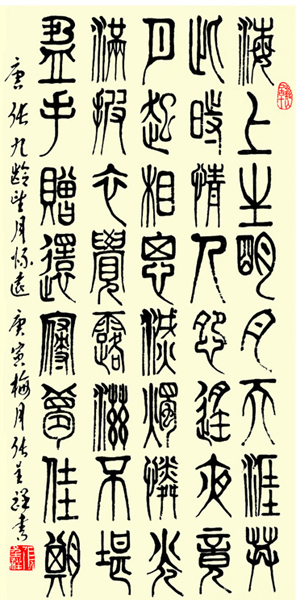 海上生明月天涯共
此時情人怨遙夜竟
夕起相思滅燭憐光
滿披衣覺露滋不堪
盈手贈還寢夢佳期
唐張九齡望月怀遠 庚寅梅月張書